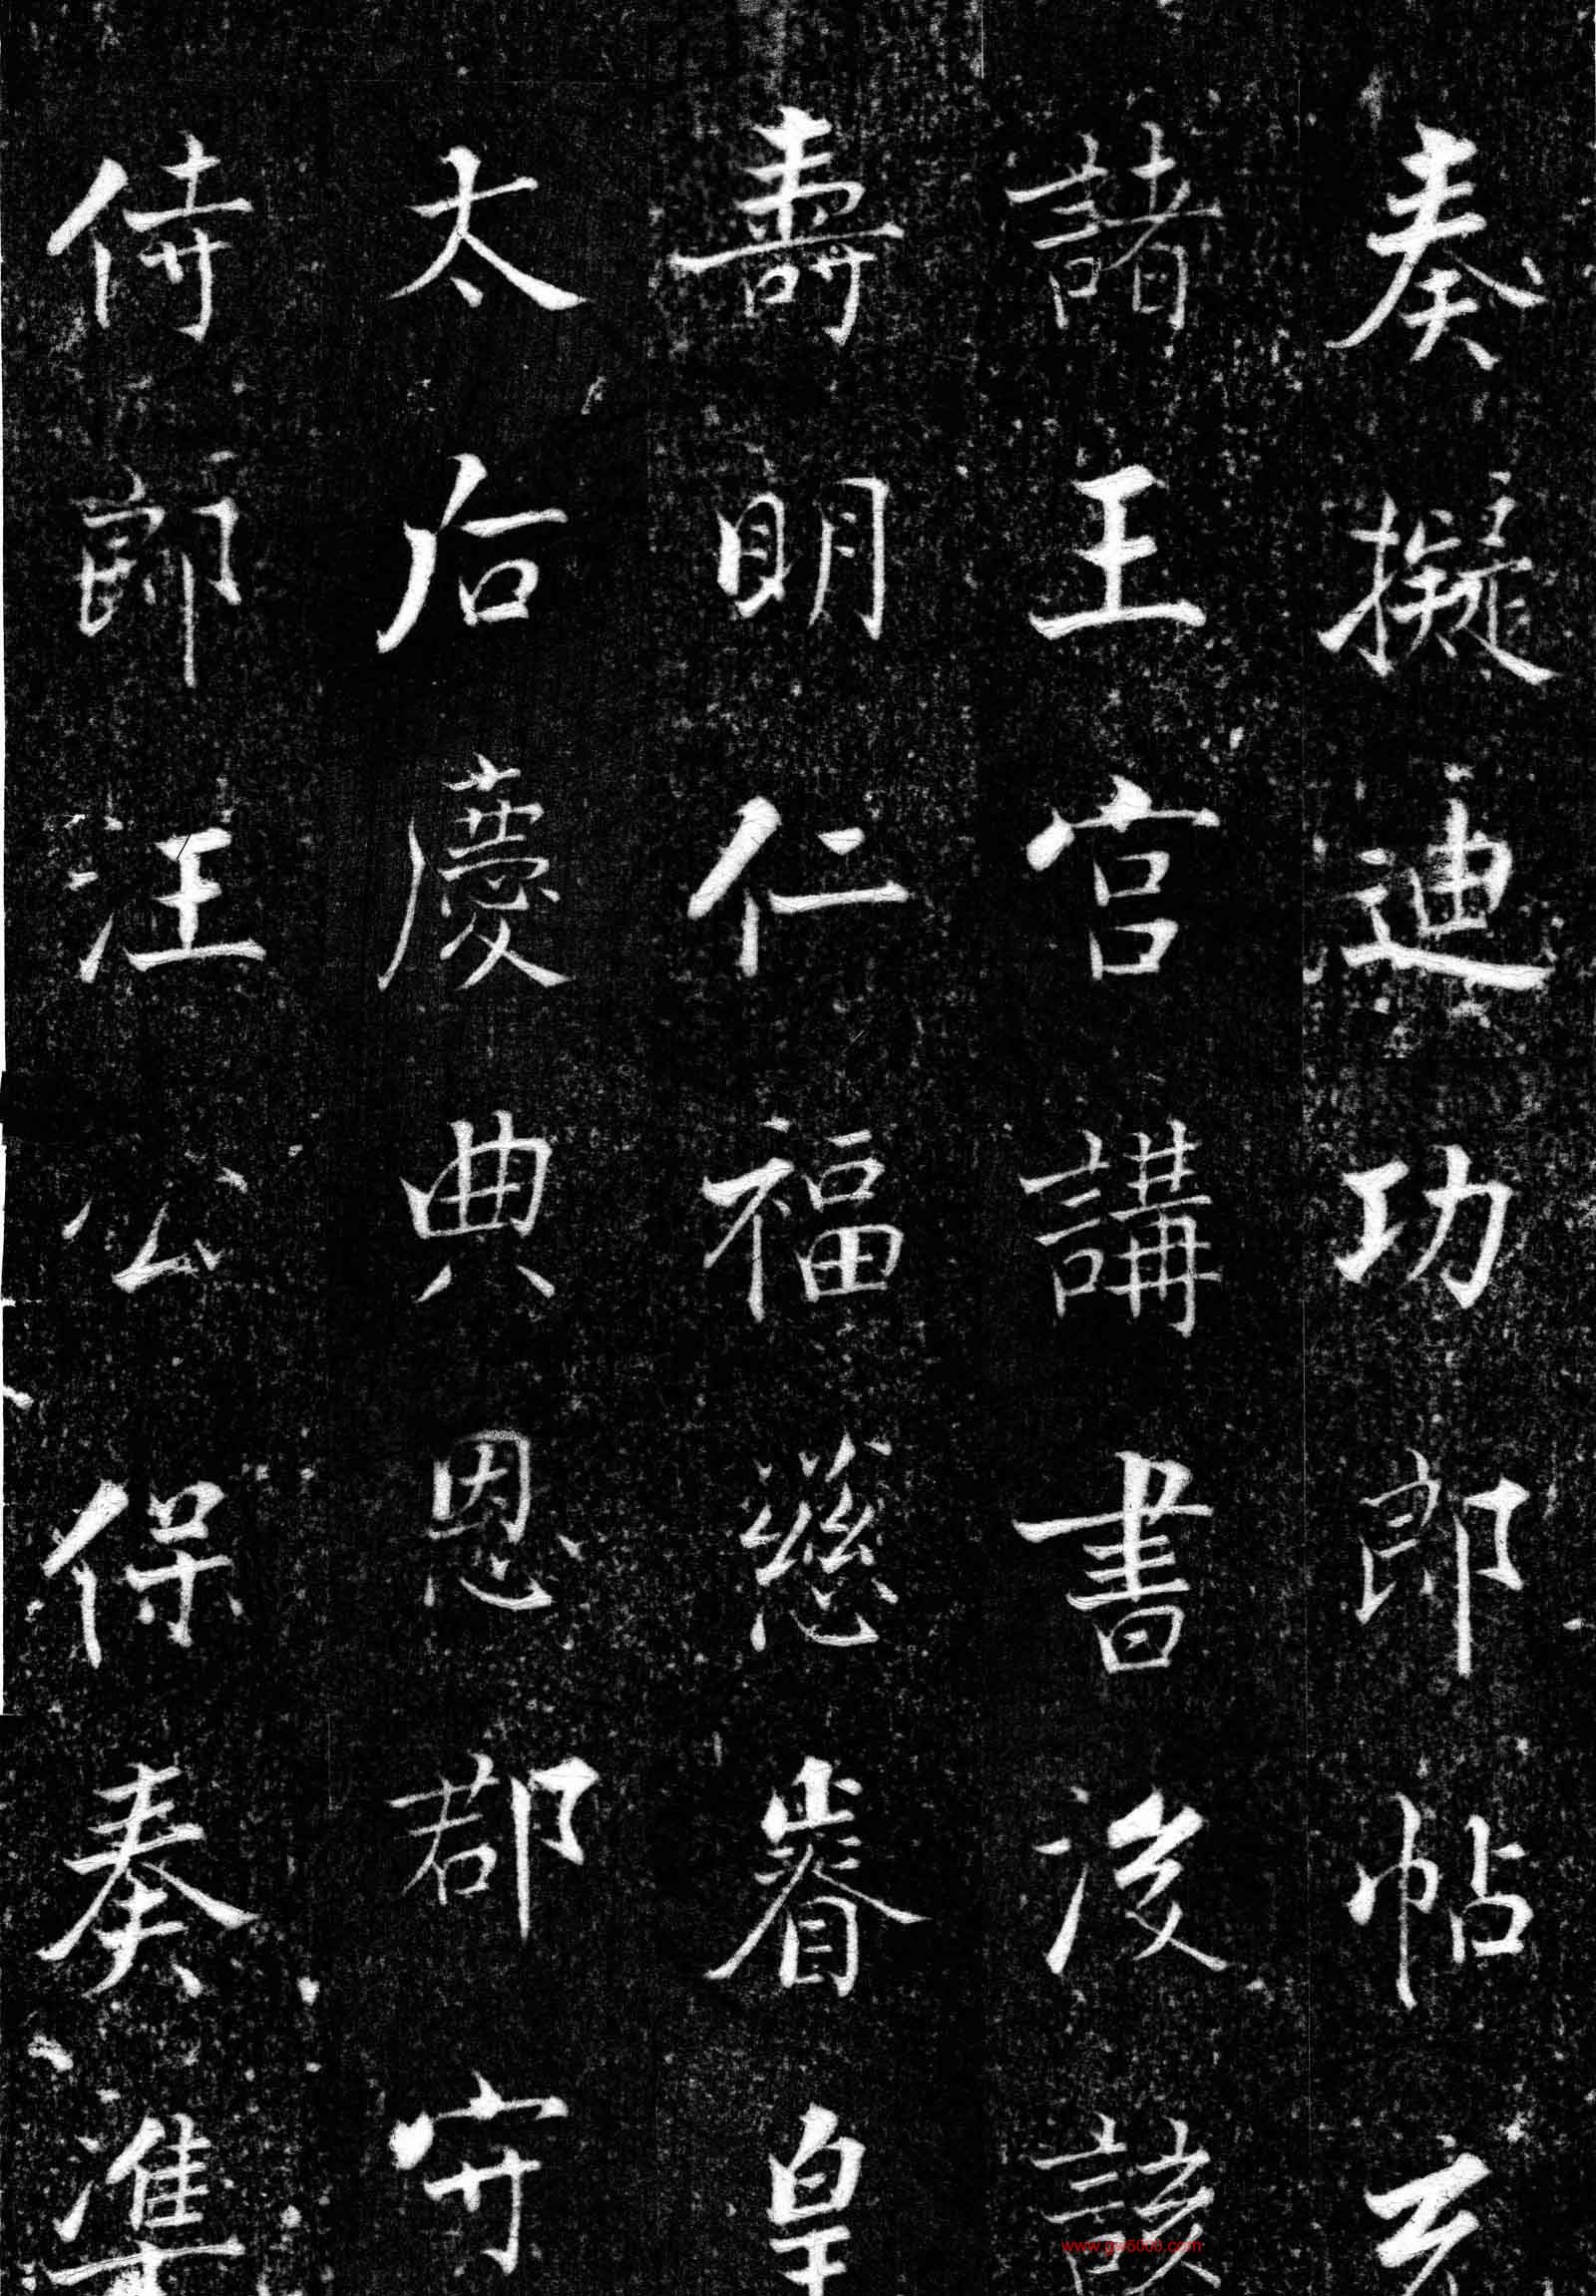 奏擬迪功郎帖玄
諸王宮講書後該
壽明仁福慈睿皇
太后慶典恩郡守
侍郎汪公保奏準
www.gw5000.com